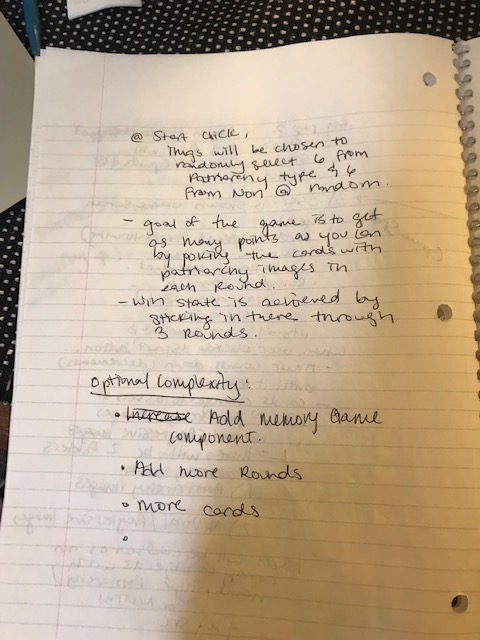 @ Start click,
imgs will be chosen to
randomly select 6 from
Patriarchy type & 6
from Non @ random.
- goal of the game is to get
as many points as you can
by poking the cards with
patriarchy images in
each round.
- Win state is achieved by
sticking in there through
3 rounds.
Optional Complexity:
• Increase Add memory Game
component.
• Add more Rounds
• more cards
•